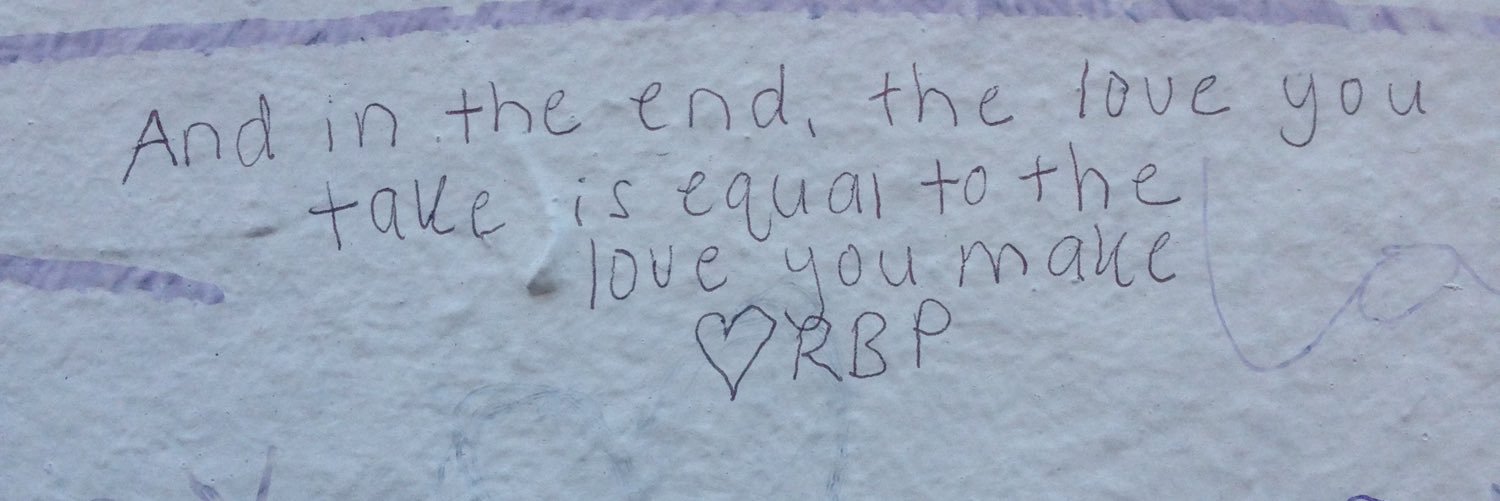 And in the end, the love you
take is equal to the
love you make
♡ RBP